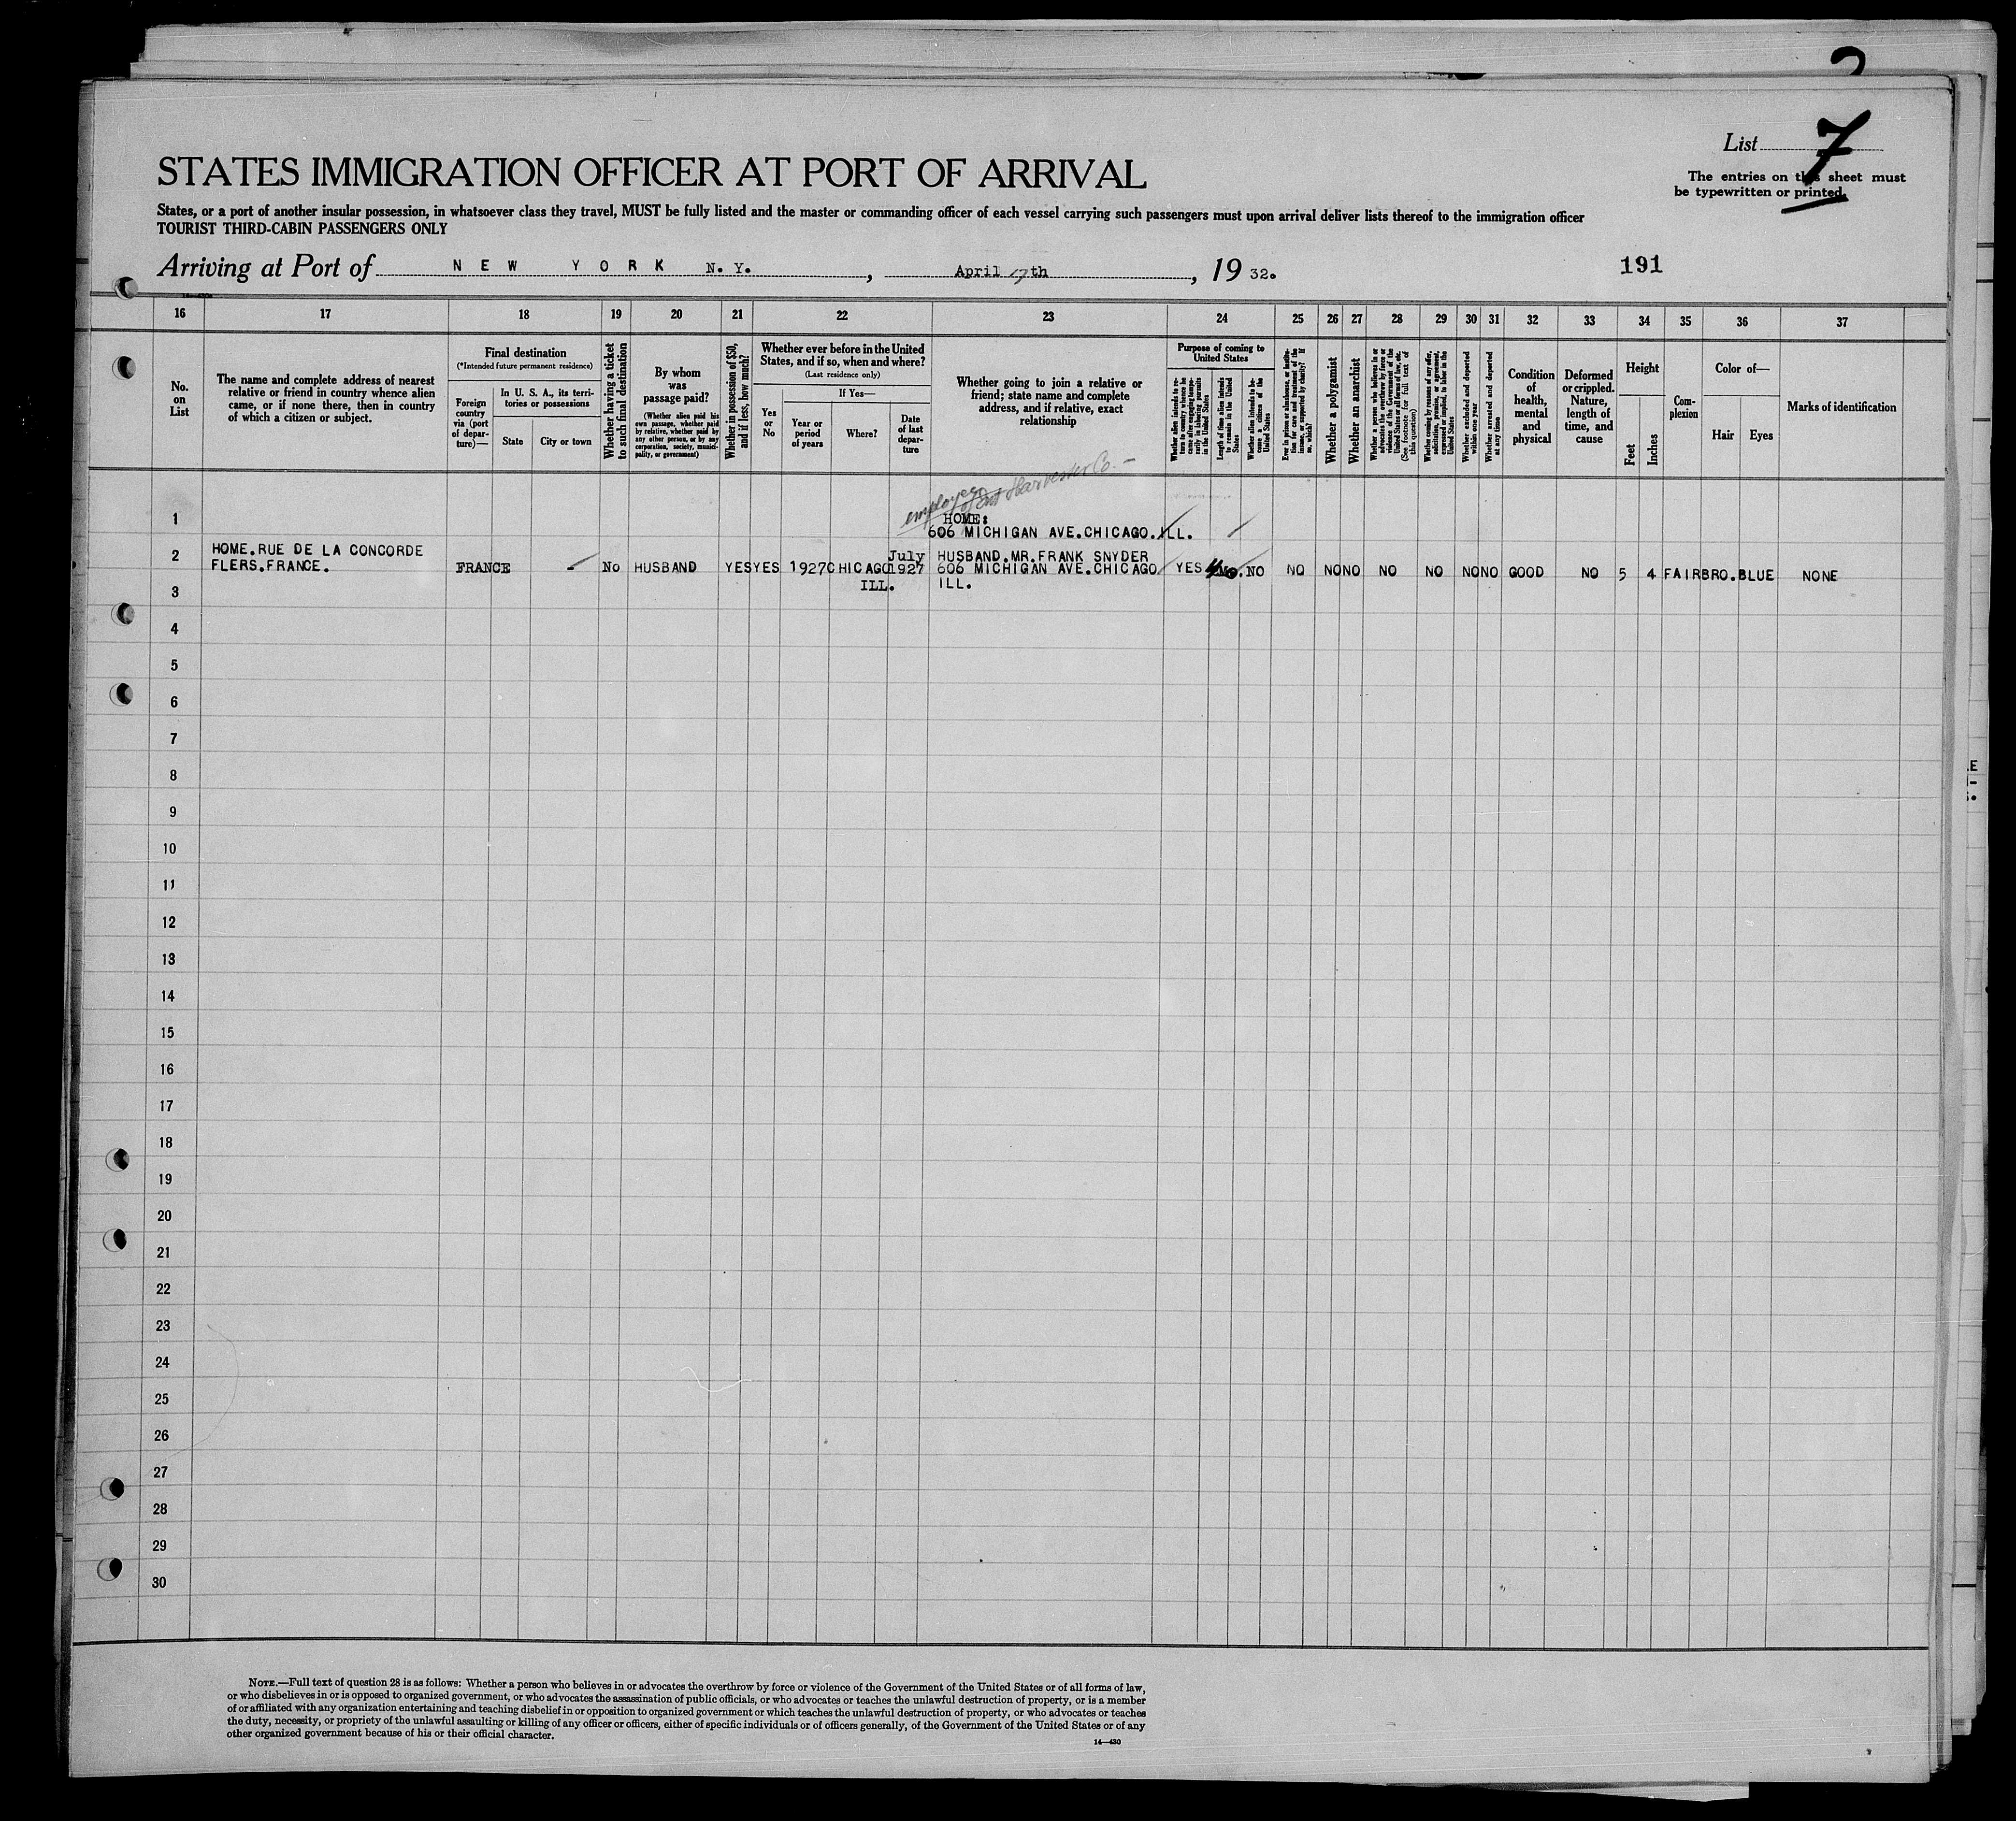 List 7
The entries on this sheet must
be typewritten or printed.
STATES IMMIGRATION OFFICER AT PORT OF ARRIVAL
States, or a port of another insular possession, in whatsoever class they travel, MUST be fully listed and the master or commanding officer of each vessel carrying such passengers must upon arrival deliver lists thereof to the immigration officer
TOURIST THIRD-CABIN PASSENGERS ONLY
Arriving at Port of NEW YORK N. Y., April 17th, 19 32.
191
16 17 18 19 20 21 22 23 24 25 26 27 28 29 30 31 32 33 34 35 36 37
No. on List
The name and complete address of nearest
relative or friend in country whence alien
came, or if none there, then in country
of which a citizen or subject.
Final destination
(*Intended future permanent residence)
Foreign
country
via (port
of depar-
ture)—
In U. S. A., its terri-
tories or possessions
State
City or town
Whether having a ticket
to such final destination
By whom
was
passage paid?
(Whether alien paid his
own passage, whether paid
by relative, whether paid by
any other person, or by any
corporation, society, munici-
pality, or government)
Whether in possession of $50,
and if less, how much?
Whether ever before in the United
States, and if so, when and where?
(Last residence only)
Yes
or
No
If Yes—
Year or
period
of years
Where?
Date
of last
depar-
ture
Whether going to join a relative or
friend; state name and complete
address, and if relative, exact
relationship
Purpose of coming to
United States
Whether alien intends to re-
turn to country whence he
came after engaging tempo-
rarily in laboring pursuits
in the United States
Length of time alien intends
to remain in the United
States
Whether alien intends to be-
come a citizen of the
United States
Ever in prison or almshouse, or institu-
tion for care and treatment of the
insane, or supported by charity? If
so, which?
Whether a polygamist
Whether an anarchist
Whether a person who believes in or
advocates the overthrow by force or
violence of the Government of the
United States or all forms of law, etc.
(See footnote for full text of
this question)
Whether coming by reason of any offer,
solicitation, promise, or agreement,
expressed or implied, to labor in the
United States
Whether excluded and deported
within one year
Whether arrested and deported
at any time
Condition
of
health,
mental
and
physical
Deformed
or crippled.
Nature,
length of
time, and
cause
Height
Feet
Inches
Com-
plexion
Color of—
Hair
Eyes
Marks of identification
employee of Int Harvester Co. —
1
HOME:
606 MICHIGAN AVE.CHICAGO.ILL.
2 HOME.RUE DE LA CONCORDE
FLERS.FRANCE.
FRANCE - No HUSBAND YES YES 1927 CHICAGO ILL. July 1927
HUSBAND.MR.FRANK SNYDER
606 MICHIGAN AVE.CHICAGO
ILL.
YES Mo. NO NO NO NO NO NO NO NO GOOD NO 5 4 FAIR BRO. BLUE NONE
3
4
5
6
7
8
9
10
11
12
13
14
15
16
17
18
19
20
21
22
23
24
25
26
27
28
29
30
NOTE.—Full text of question 28 is as follows: Whether a person who believes in or advocates the overthrow by force or violence of the Government of the United States or of all forms of law,
or who disbelieves in or is opposed to organized government, or who advocates the assassination of public officials, or who advocates or teaches the unlawful destruction of property, or is a member
of or affiliated with any organization entertaining and teaching disbelief in or opposition to organized government or which teaches the unlawful destruction of property, or who advocates or teaches
the duty, necessity, or propriety of the unlawful assaulting or killing of any officer or officers, either of specific individuals or of officers generally, of the Government of the United States or of any
other organized government because of his or their official character.
14—430